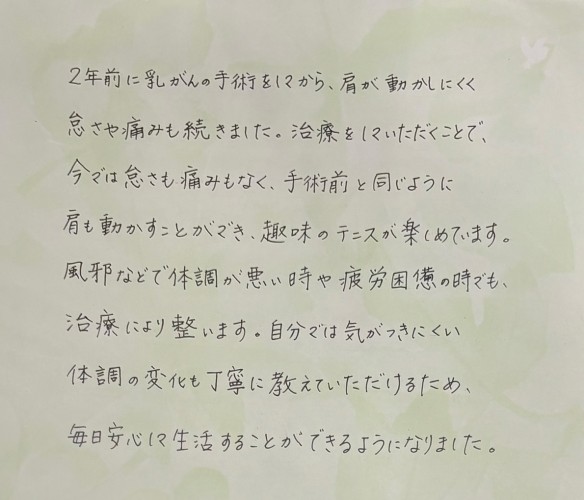 2年前に乳がんの手術をしてから、肩が動かしにくく
怠さや痛みも続きました。治療をしていただくことで、
今では怠さも痛みもなく、手術前と同じように
肩も動かすことができ、趣味のテニスが楽しめています。
風邪などで体調が悪い時や疲労困憊の時でも、
治療により整います。自分では気がつきにくい
体調の変化も丁寧に教えていただけるため、
毎日安心して生活することができるようになりました。